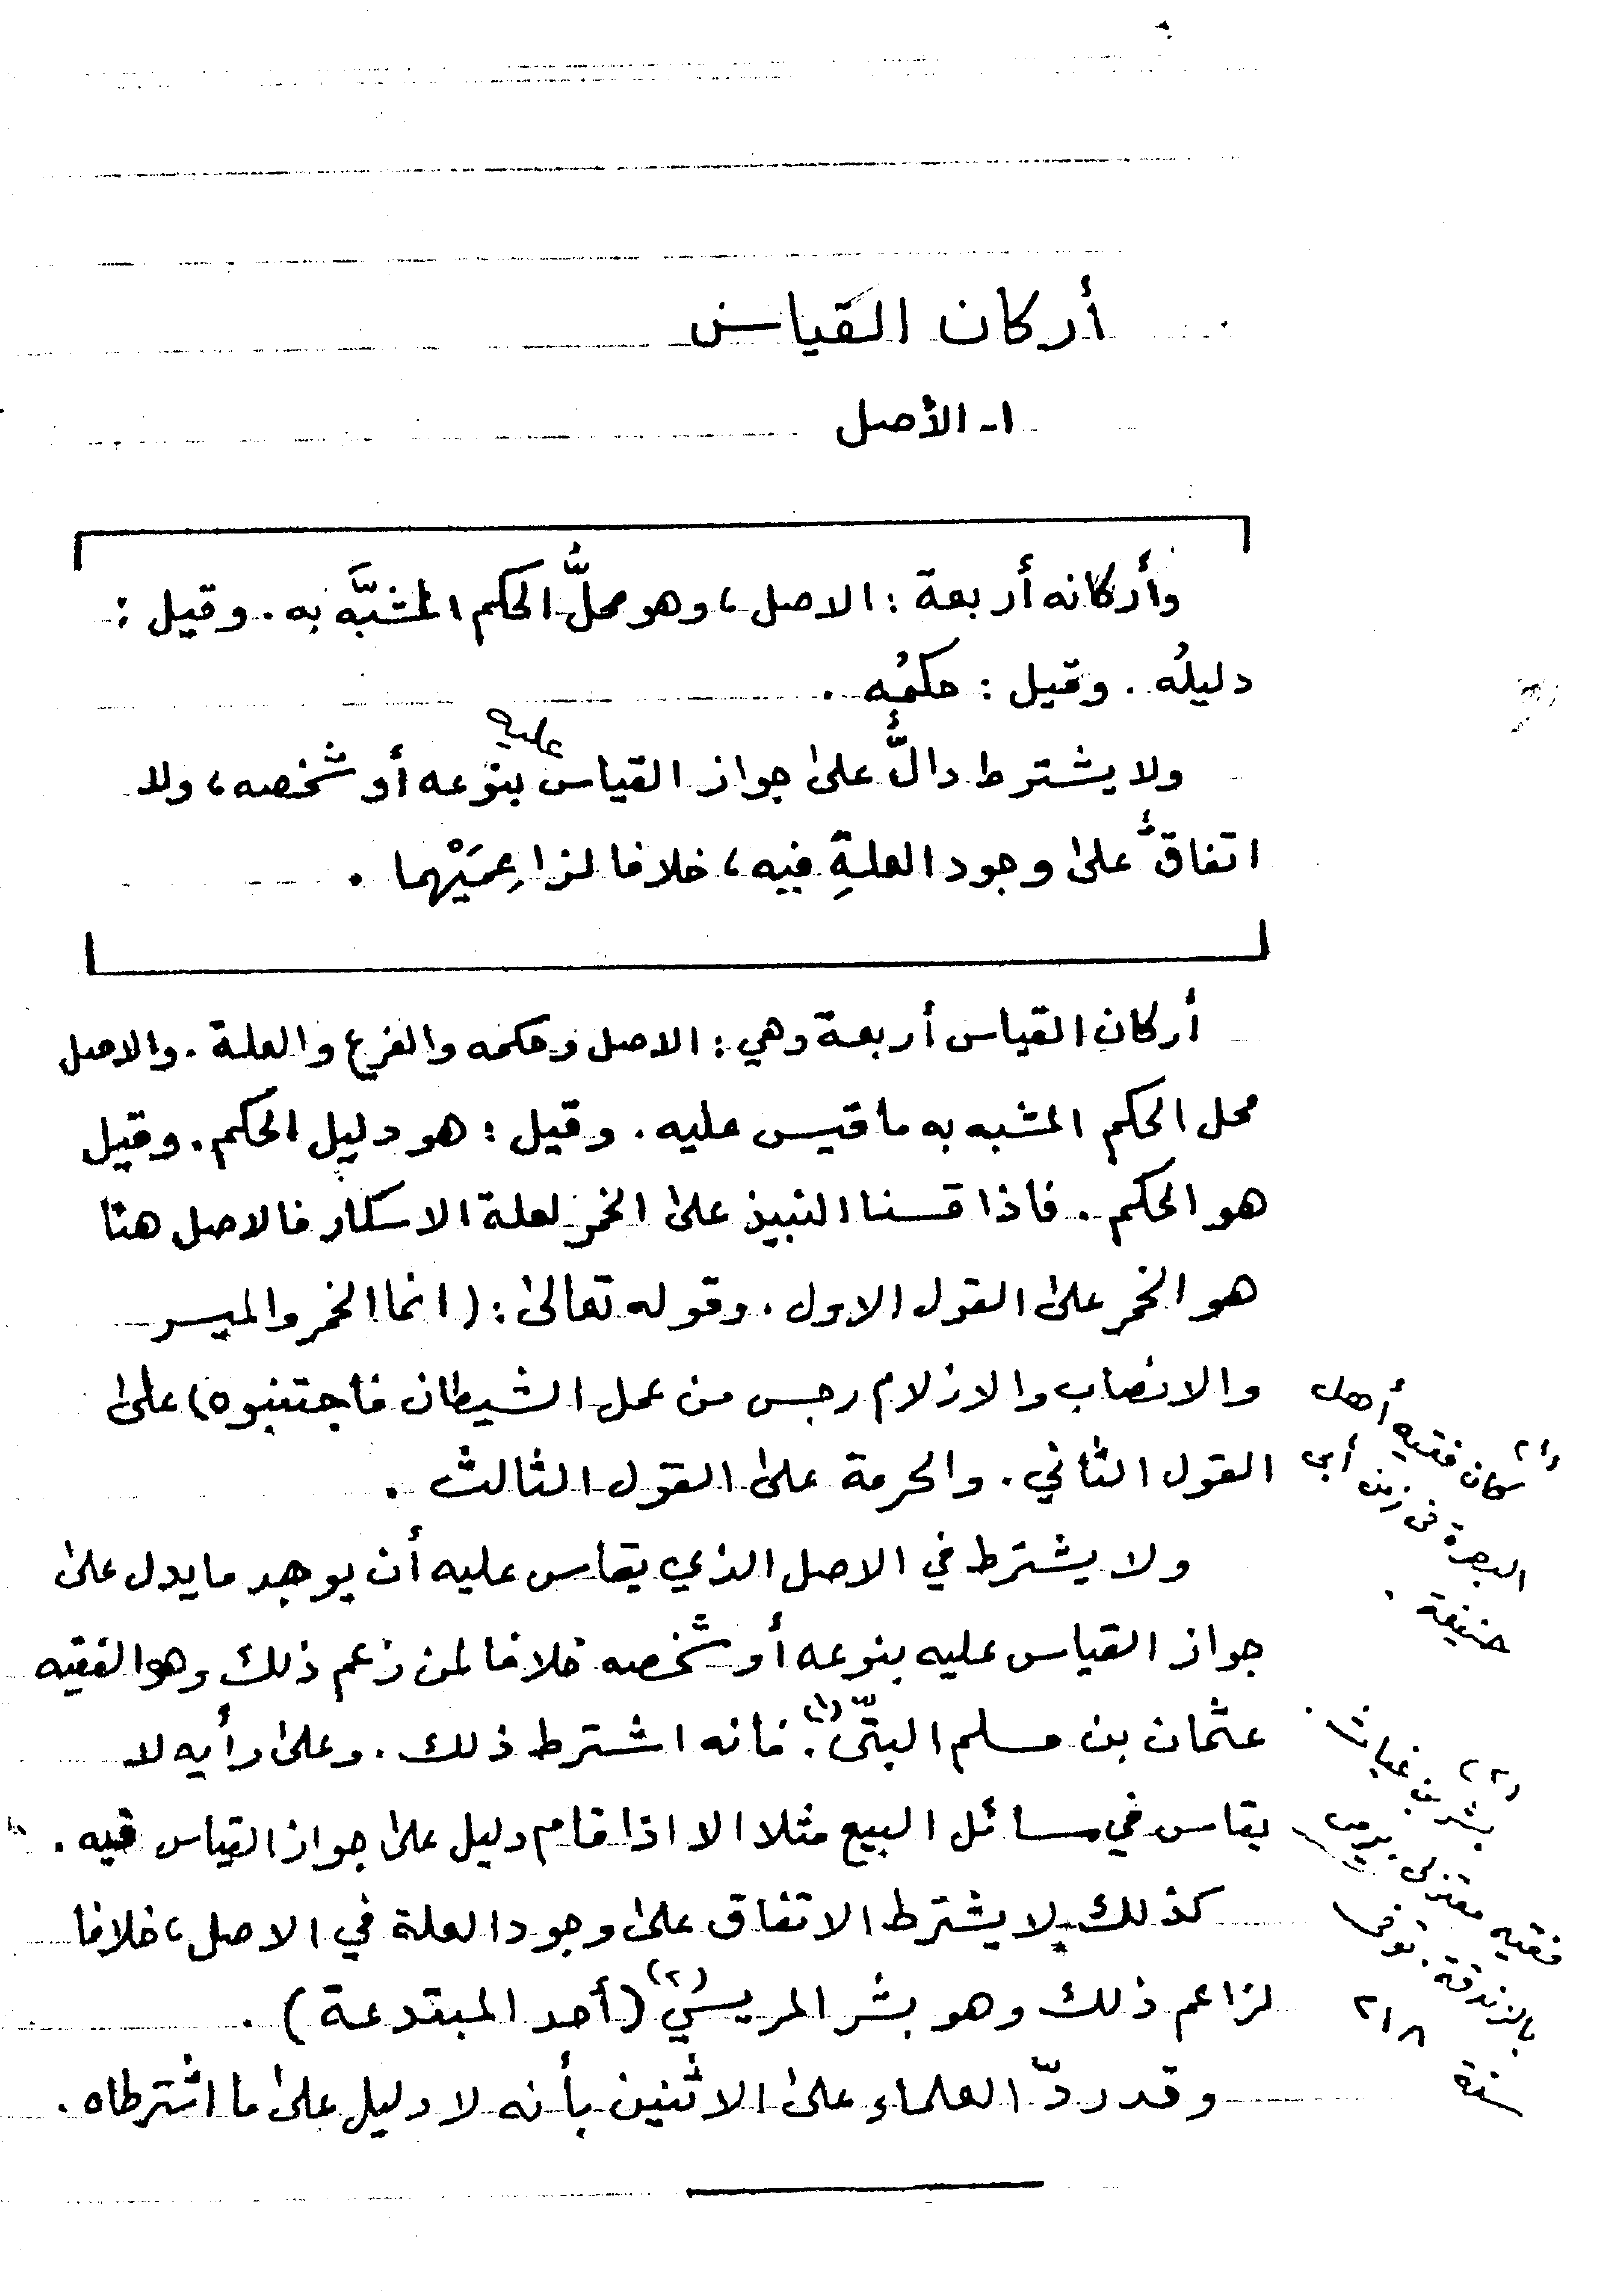 أركان القياس
١- الأصل
وأركانه أربعة : الاصل ، وهو محلُّ الحكم المشبَّه به . وقيل :
دليلُه . وقيل : حكمُه .
ولا يشترط دالٌّ على جواز القياس عليه بنوعه أو شخصه ، ولا
اتفاقٌ على وجود العلةِ فيه ، خلافا لزاعِمَيْهما .
أركان القياس أربعة وهي : الاصل وحكمه والفرع والعلة . والاصل
محل الحكم المشبه به ما قيس عليه . وقيل : هو دليل الحكم . وقيل
هو الحكم . فاذا قسنا النبيذ على الخمر لعلة الاسكار فالاصل هنا
هو الخمر على القول الاول . وقوله تعالى : ( انما الخمر والميسر
والانصاب والازلام رجس من عمل الشيطان فاجتنبوه ) على
القول الثاني . والحرمة على القول الثالث .
ولا يشترط في الاصل الذي يقاس عليه أن يوجد ما يدل على
جواز القياس عليه بنوعه أو شخصه خلافا لمن زعم ذلك وهو الفقيه
عثمان بن مسلم البتّى (١) . فانه اشترط ذلك . وعلى رأيه لا
يقاس في مسائل البيع مثلا الا اذا قام دليل على جواز القياس فيه .
كذلك لا يشترط الاتفاق على وجود العلة في الاصل ، خلافا
لزاعم ذلك وهو بشر المريسي (٢) ( أحد المبتدعة ) .
وقد ردّ العلماء على الاثنين بأنه لا دليل على ما اشترطاه .
(١) كان فقيه أهل
البصرة في زمن أبي
حنيفة .
(٢) بشر بن غياث .
فقيه معتزلي يرمى
بالزندقة . توفي
سنة ٢١٨